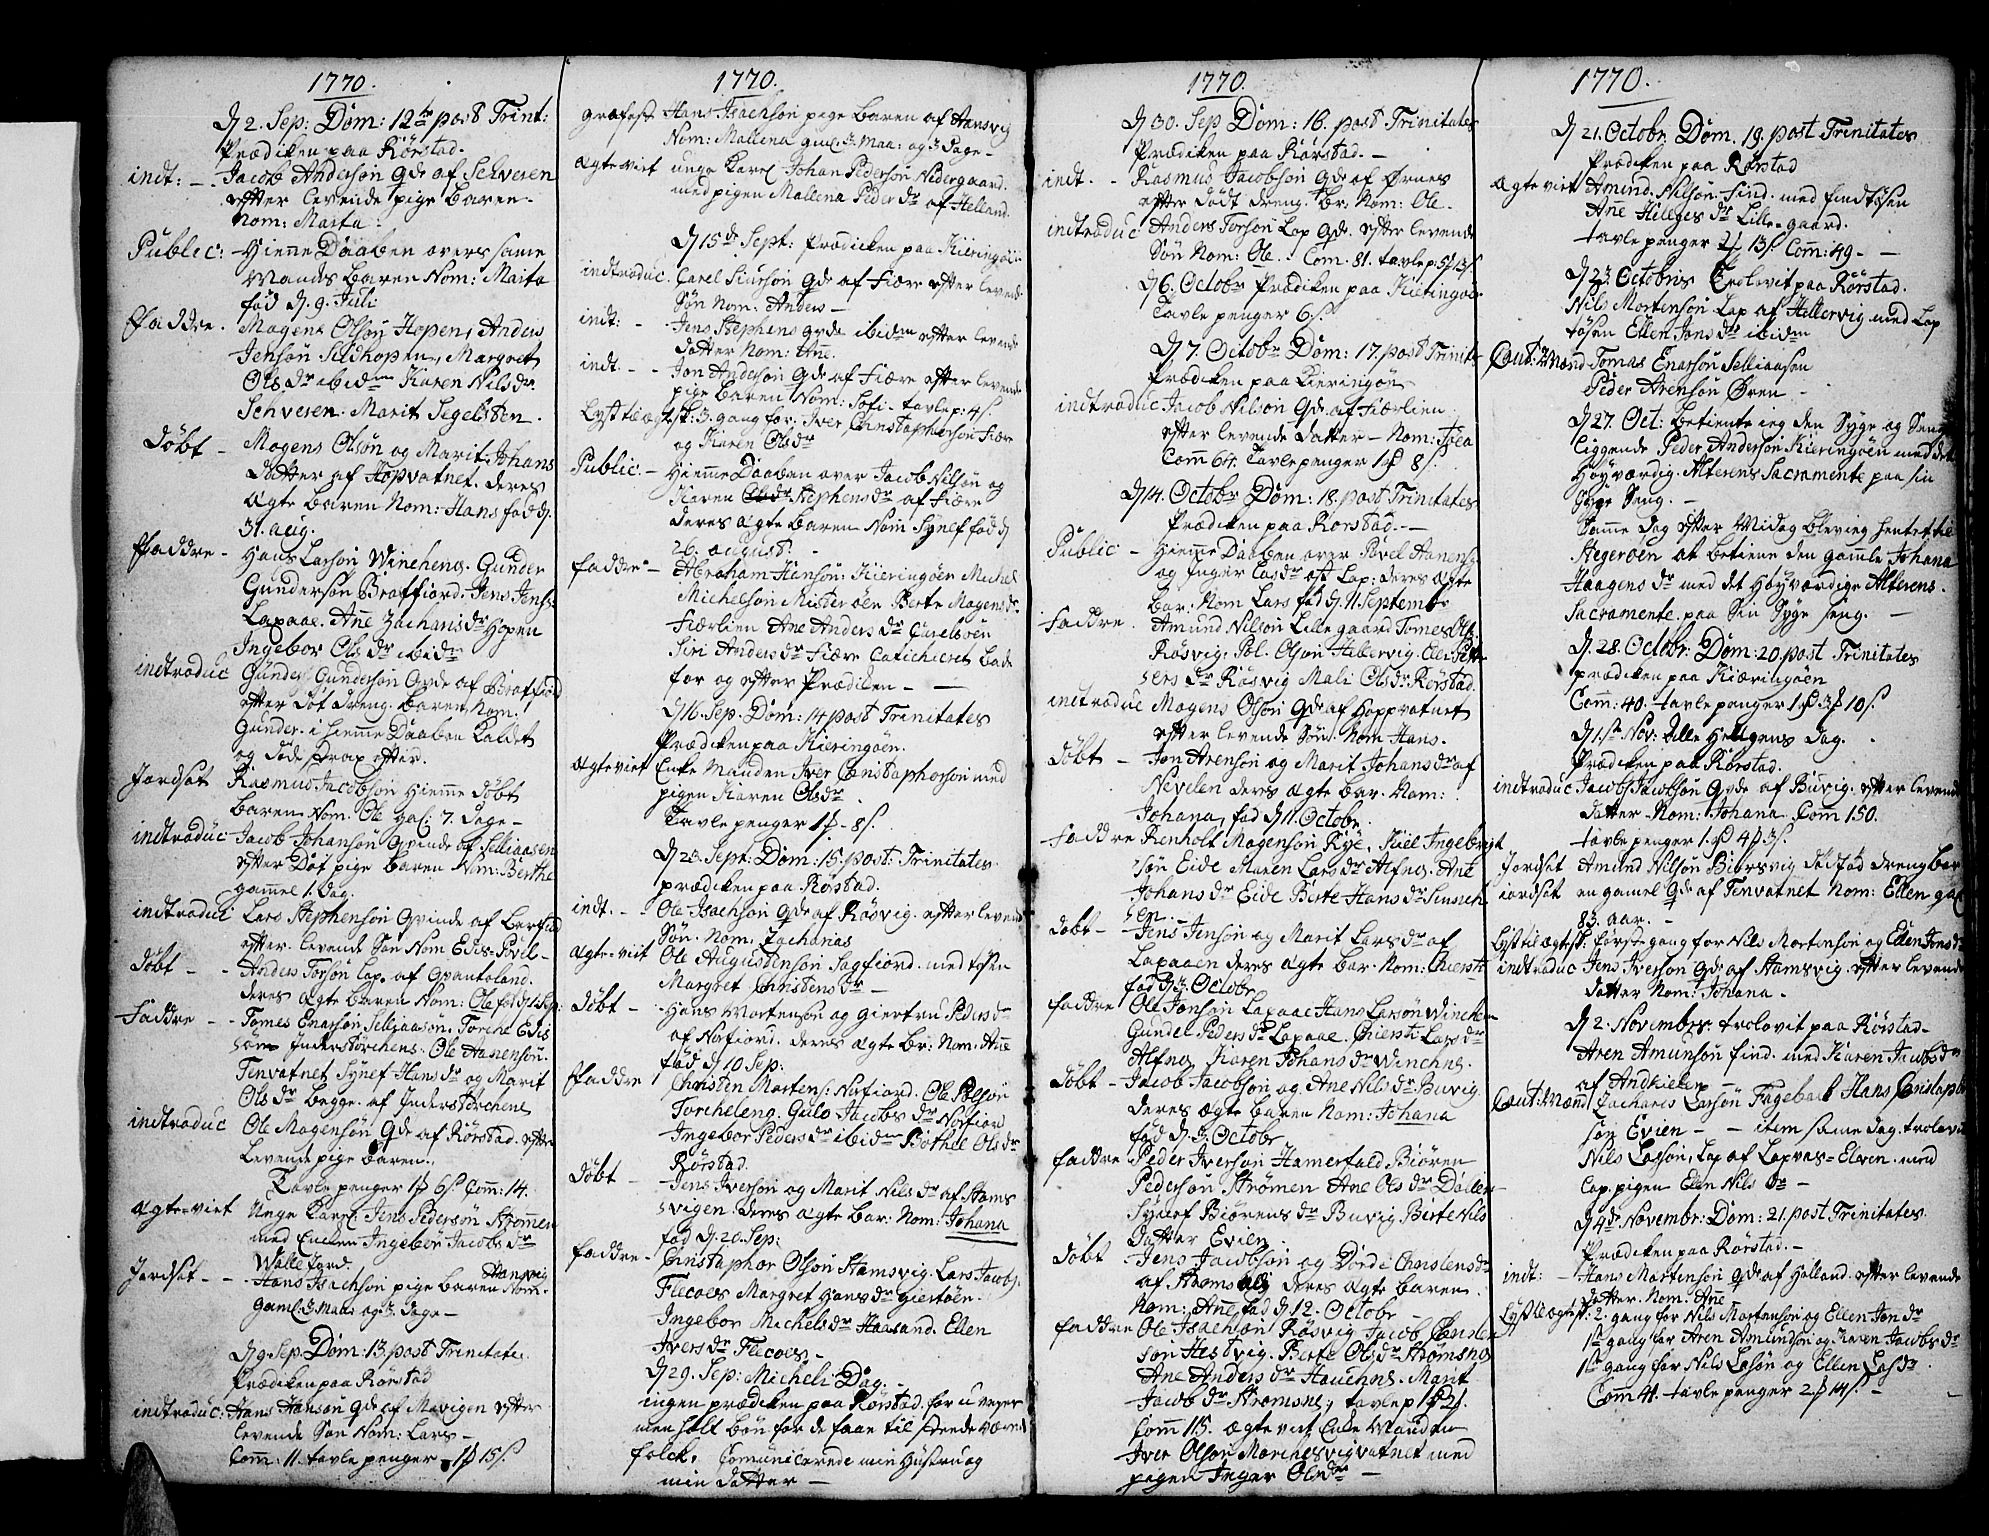 1770.
D 2. Sep: Dom: 12te post Trint:
Prædiken paa Rörstad.
indt: - Jacob Andersön Qde af Schvesen
efter levende pige baren
Nom: Marta.
Public: Hieme Daaben overs same
Mands Baren Nom: Marta
fød d. 9. Juli
Faddre. Mogens Olsön Hopen, Anders
Jensön Sildhopen, Margret
Ols dr ibidm Karen Nils dr
Schvesen. Marit Segelsten.
Döbt - Mogens Olsön og Marit Johans
datter af Hopvatnet. deres
ægte baren Nom: Hans fød d.
31. aug.
Faddre - Hans Larsön Winchens. Gunder
Gundersön Braffiord. Jens Jens:
Lapaae. Ane Zacharis dr Hopen
Ingebor Ols dr ibidm
indtroduc Gunder Gundersön Qvde af Braffiord
efter Döt dreng baren Nom:
Gunder. i hieme Daaben kaldet
og döde strax efter.
Jordsat Rasmus Jacobsön hieme döbt
baren Nom. Ole gal: 7. Dage -
indtroduc Jacob Johansön Qvinde af Selliaasen
efter Döt pige baren Nom: Berthe
gamel 1. Dag.
indtroduc Lars Stephensön Qvinde af Lerfiord
efter levende Sön Nom Edis-Povel-
döbt - - Anders Torsön Lap. af Qvantoland.
deres ægte baren Nom: Ole fød d 1 Sep:
Faddre - - Tomes Enarsön Selliaasön. Torche Edis
sön Inderstörchens. Ole Aanensön.
Tenvatnet Synef Hans dr og Marit
Ols dr begge. af Inderstörchens
indtroduc Ole Mogensön Qde af Rörstad. efter
Levende pige baren.
Tavle penger 1 6/ Com: 14.
ægte-viet Unge karl Jens Pedersön Strömen
med Encken Ingebör Jacobs dr
Walle fjord.
Jordsat - - Hans Isachsön pige baren Aansvig Nom.
Gaml 3 Maa: og 3. dage -
D 9 Sep. Dom: 13. post Trinitate.
Prædiken paa Rörstad
indtroduc: Hans Hansön Qde af Mevigen efter
levende Sön Nom: Lars -
Com: 11. tavle penger 1 15/.
1770.
grafest Hans Isachsön pige baren af Aansvig
Nom: Mallena gml 3. Maa: og 3 Dage -
ægte viet unge karl Johan Pedersön Nedergaard
med pigen Mallena Peder dr af Helland
D 15 d Sept: Prædicken paa Kieringöen
indtroduc. Carel Siursön Qde af Fiære efter levende
Sön Nom. Anders -
indt: - Jens Stephens Qvde ibidm efter levende
datter Nom: Ane.
indt. - - Jon Andersön Qde af Fiære efter levende
pige baren Nom: Sofi. - tavle p: 4/.
Lyst til ægtesk: 3. gang for: Iver Christophersön Fiær
og Karen Ols dr
Public: - Hieme Daaben over Jacob Nilsön og
Karen Stephens dr af Fiære
deres ægte baren Nom Synef fød d
26. august. -
Faddre - Abraham Hensön. Kieringöen Michel
Michelsön Misteröen Berte Mogens dr
Fiærlien Ane Anders dr
Siri Anders dr Fiære Catichiceret bade
for og efter Prædiken -
D 16 Sep. Dom: 14 post Trinitates
Prædiken paa Kieringöen.
ægte viet Encke Manden Iver Christophorsön med
pigen Karen Ols dr
Tavle penger 1 - 8/.
D 23. Sept: Dom: 15. post: Trinitates.
prædiken paa Rörstad.
indt. - - Ole Isachsön Qde af Rösvig. efter levende
Sön. Nom. Zacharias
ægte-viet Ole Augustensön Sagfiord. med tösen
Margret Christens dr -
döbt - Hans Mortensön og Giertru Peders dr
af Norfiord. deres ægte br: Nom. Ane
fød d 10 Sep:
Faddre Christen Mortens: Norfiord. Ole Polsön
Torcheleng. Gulo Jacobs dr Norfiord
Ingebor Peders dr ibidm Bothel Ols dr
Rörstad.
Döbt - Jens Iversön og Marit Nils dr af Stams
vigen. deres ægte bar: Nom: Johana
fød d. 20. Sep:
Faddre - Christophor Olsön Stamsvig. Lars Jacobs:
Flecoes Margret Hans dr Giertöen.
Ingebor Michels dr Haasand. Ellen
Ivers dr Flecoes -
D 29. Sep: Micheli Dag. -
ingen prædiken paa Rörstad. for u veyer
men holt bön for de faae til stende værende
folck. Comunicerede min Hustru og
min datter -
1770.
D 30. Sep Dom: 16. post Trinitates
Prædiken paa Rörstad. -
indt. - Rasmus Jacobsön Qde af Örnes
efter dödt dreng. br. Nom: Ole -
indtroduc Anders Torsön Lap Qde. efter levende
Sön Nom: Ole. Com. 81. tavle p: 5 13/
D 6. Octobr Prædiken paa Kieringöen
Tavle penger 6/.
D 7. Octobr Dom: 17. post Trinitat
Prædiken paa Kieringöen
indtroduc Jacob Nilsön Qde af Fiærlien
efter levende datter - Nom:
Com 64. Tavle penger 1 8/.
D 14. Octobr Dom: 18. post Trinitates
Prædiken paa Rorstad. -
Public - Hieme Daaben over Povel Aanens:
og Inger Las dr ost Lap: deres ægte
bar. Nom Lars fød d. 11 Septembr
Faddre. Amund Nilsön Lille gaard Tomes Ols.
Rösvig. Pol. Olsön Hellervig. Olen Pet
ers dr Rösvig Mali Ols dr Rörstad.
indtroduc Mogens Olsön Qde af Hopvatnet
efter levende Sön. Nom Hans.
Döbt - Jon Arensön og Marit Johans dr af
Nevelen deres ægte bar. Nom:
Johana, fød d 11. Octobr.
Faddre Renholt Mogensön Rye, Kiel Ingebrigt
sön Eide Maren Lars dr Alfnes. Ane
Johans dr Eide Berte Hans dr
sen -
Döbt - Jens Jensön og Marit Lars dr af
Lapaaen deres ægte bar. Nom: Chiersti
fød d 3. Octobr
Faddre Ole Jonsön Lapaae Hans Larsön Winchen
Gundel Peders dr Lapaae. Chiersti Lars dr
Alfnes Karen Johans dr Winchns.
Döbt - Jacob Jacobsön og Ane Nils dr Buvig
deres ægte baren Nom: Johana
fød d. 3. Octobr
Faddre Peder Iversön Hamerfald Biören
Pedersön Strömen Ane Ols dr Dallen
Synef Biörens dr Buvig Berte Nils
datter Evien
Döbt - Jens Jacobsön og Dord e Christens dr
af Stroms deres ægte baren
Nom: Ane fød d 12. Octobr
Faddre Ole Isachsön Rösvig Jacob Christen
sön Hestvig. Berte Ols dr Strömsns
Ane Anders dr Hauchns. Marit
Jacob dr Strömsns, tavle p 1 2/.
Com 115. ægte viet Enke Manden
Iver Olsön Morchesvigvatnet med
pigen Inger Ols dr -
1770.
D 21. Octobr Dom. 19. post Trinitates
Prædiken paa Rörstad
ægte viet Amund. Nilsön. find. med findtösen
Ane Hilges dr Lille-gaard.
tavle penger 2/ 13/. Com: 49 - -
D 23. Octobris Trolovit paa Rörstad.
Nils Mortensön Lap af Hellervig med Lap
tösen Ellen Jons dr ibidm
Caut: Mænd Tomas Enarsön Selliaasen
Peder Arensön Ören -
D 27. Oct: betiente ieg den Syge og Seng
liggende Peder Andersön Kieringöen med det
Höyværdig. Alterens Sacramente paa sin
Syge Seng. -
Same Dag efter Midag blev ieg hentet til
Aegeröen at betiene den gamle Johana
Haagens dr med det Höyværdige Alterens.
Sacramente. paa Sin Syge seng. -
D. 28. Octobr: Dom: 20. post Trinitates
prædiken paa Kiæringöen
Com: 40. tavle penger 1 3 10/.
D 1ste Nov: Alle Helligens Dag.
Prædiken paa Rörstad.
indtroduc Jacob Jacobsön Qvde af Buvig. efter levende
datter Nom: Johana Com 150.
tavle penger 1 4 3/.
Jordsat Amund Nilsön Biörsvig död fød dreng bar
iordsat en gamel Qde af Tenvatnet Nom: Ellen gal
83. aar. -
Lyst til ægtesk: förste gang for Nils Mortensön og Ellen Jons dr
indtroduc Jens Iversön Qde af Stamsvig. efter levende
datter Nom: Johana -
D 2. Novembr. trolovit paa Rörstad -
Aren Amunsön find. med Karen Jacobs dr
af Andkielen
Caut: Mænd Zacharis Larsön Fageback Hans Christoph
sön Evien - - item same dag. trolovit
Nils Lasön, Lap af Lapvas-Elven. med
Lap. pigen Elen Nils dr -
D 4de Novembr: Dom: 21. post Trinitates
Prædiken paa Rörstad. -
indt: - Hans Martensön Qde af Helland. efter levende
datter. Nom. Ane
Lyst til ægtesk: 2. gang for Nils Mortensön og Ellen Jon dr
1ste gang for Aren Amundsön og Karen Jacobs dr
1ste gang for Nils Lasön og Ellen Las dr.
Com 41. tavle penger 2 14/. -